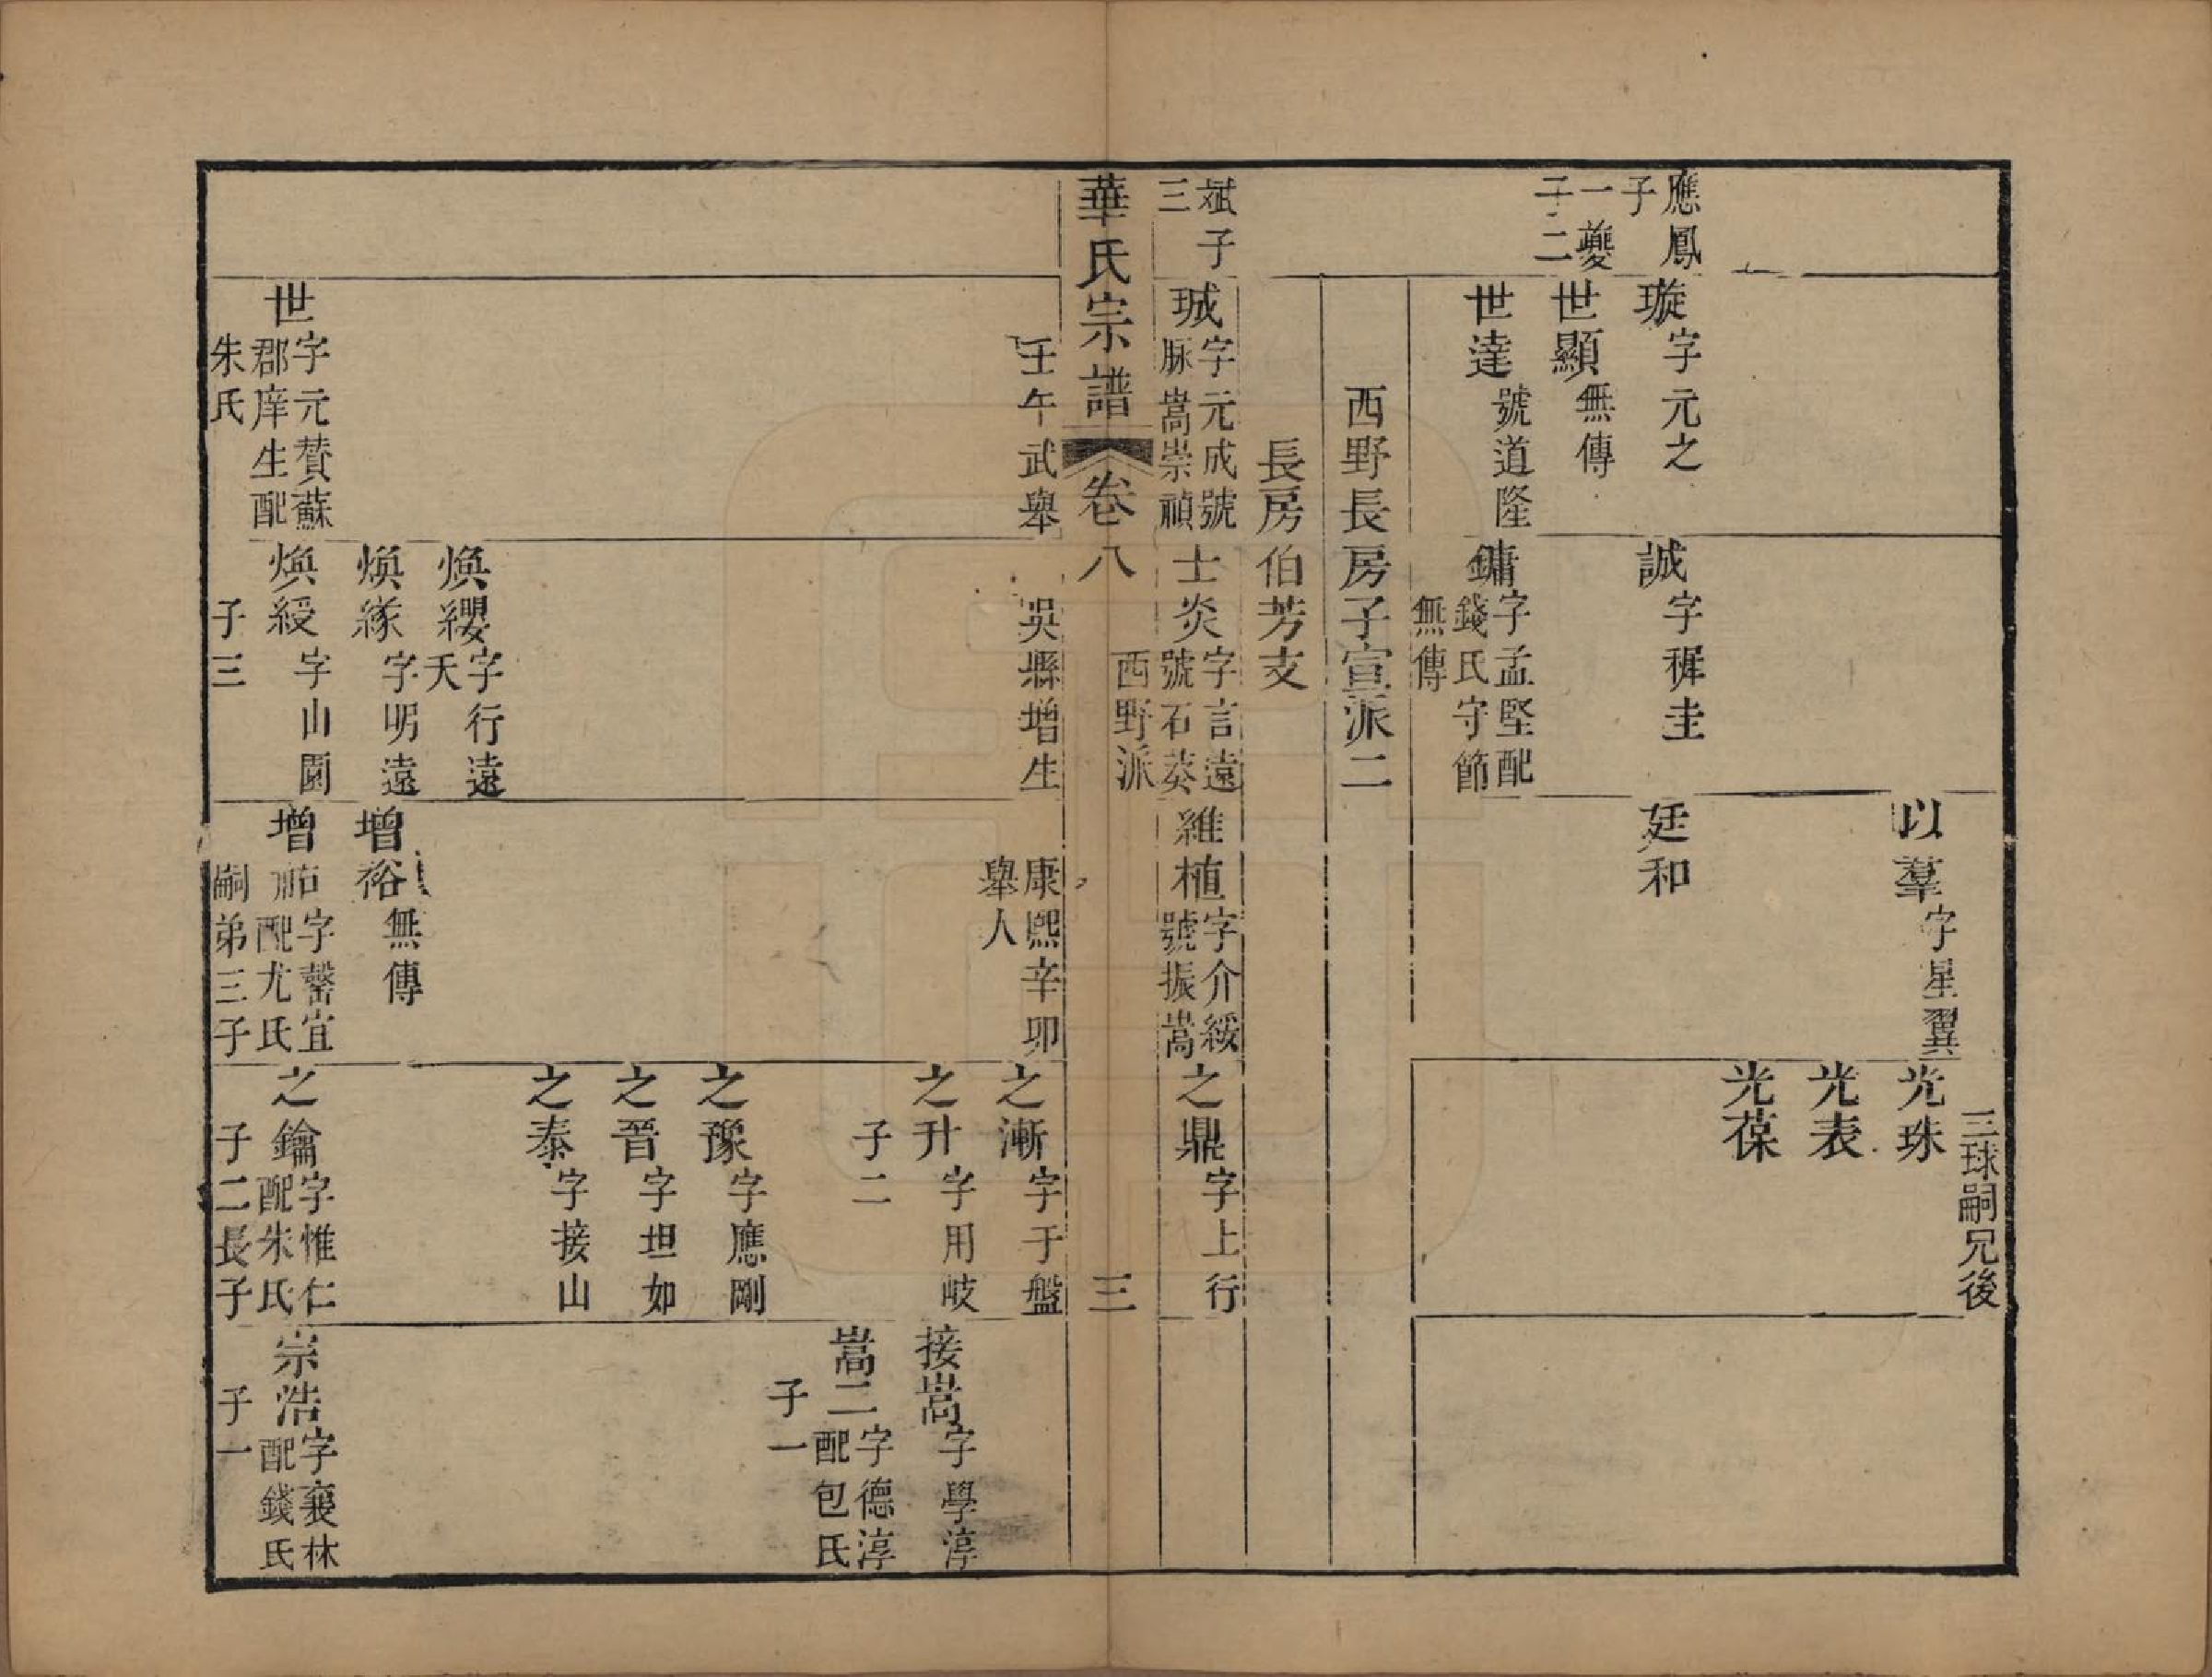 三球嗣兄後
以羣字星翼
光珠
光表
光葆
應鳳子
一夔子二
璇字元之
誠字穉圭
廷和
世顯無傳
世達號道隆
鏞字孟堅配錢氏守節無傳
西野長房子宣派二
長房伯芳支
斌子三
珹字元成號脉嵩崇禎
士炎字言遠號石葵西野派
維植字介綏號振嵩
之鼎字上行
華氏宗譜 卷八 三
壬午武舉
吳縣增生
康熙辛卯舉人
之漸字于盤
之升字用岐子二
接嵩字學淳
嵩二字德淳配包氏子一
之豫字應剛
之晉字坦如
之泰字接山
煥纓字行遠天
煥緣字明遠
增裕無傳
世字元贊蘇郡庠生配朱氏
煥綬字山園子三
增祐字馨宜配尤氏嗣弟三子
之鑰字惟仁配朱氏子二長子
宗浩字襄林配錢氏子一